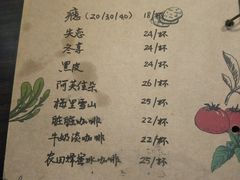 瘾(20/30/40) 18/杯
失恋 24/杯
冬喜 24/杯
黑皮 24/杯
阿芙佳朵 26/杯
梅里雪山 25/杯
脏脏咖啡 22/杯
牛奶淡咖啡 22/杯
农田柠檬冰咖啡 25/杯